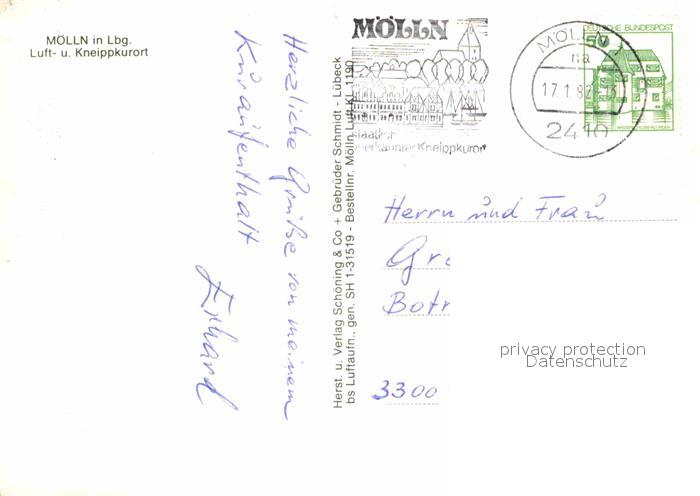 MÖLLN in Lbg.
Luft- u. Kneippkurort
Herzliche Grüße von meinem
Kuraufenthalt
Erhard
Herst. u. Verlag Schöning & Co + Gebrüder Schmidt - Lübeck
bs Luftaufn., gen. SH 1-31519 - Bestellnr. Mölln Luft KL 1190
MÖLLN
Staatlich
anerkannter Kneippkurort
MÖLLN
na
17.1.82-13
2410
DEUTSCHE BUNDESPOST
50
WASSERSCHLOSS INZLINGEN
Herrn und Frau
Gr
Botr
3300
privacy protection
Datenschutz